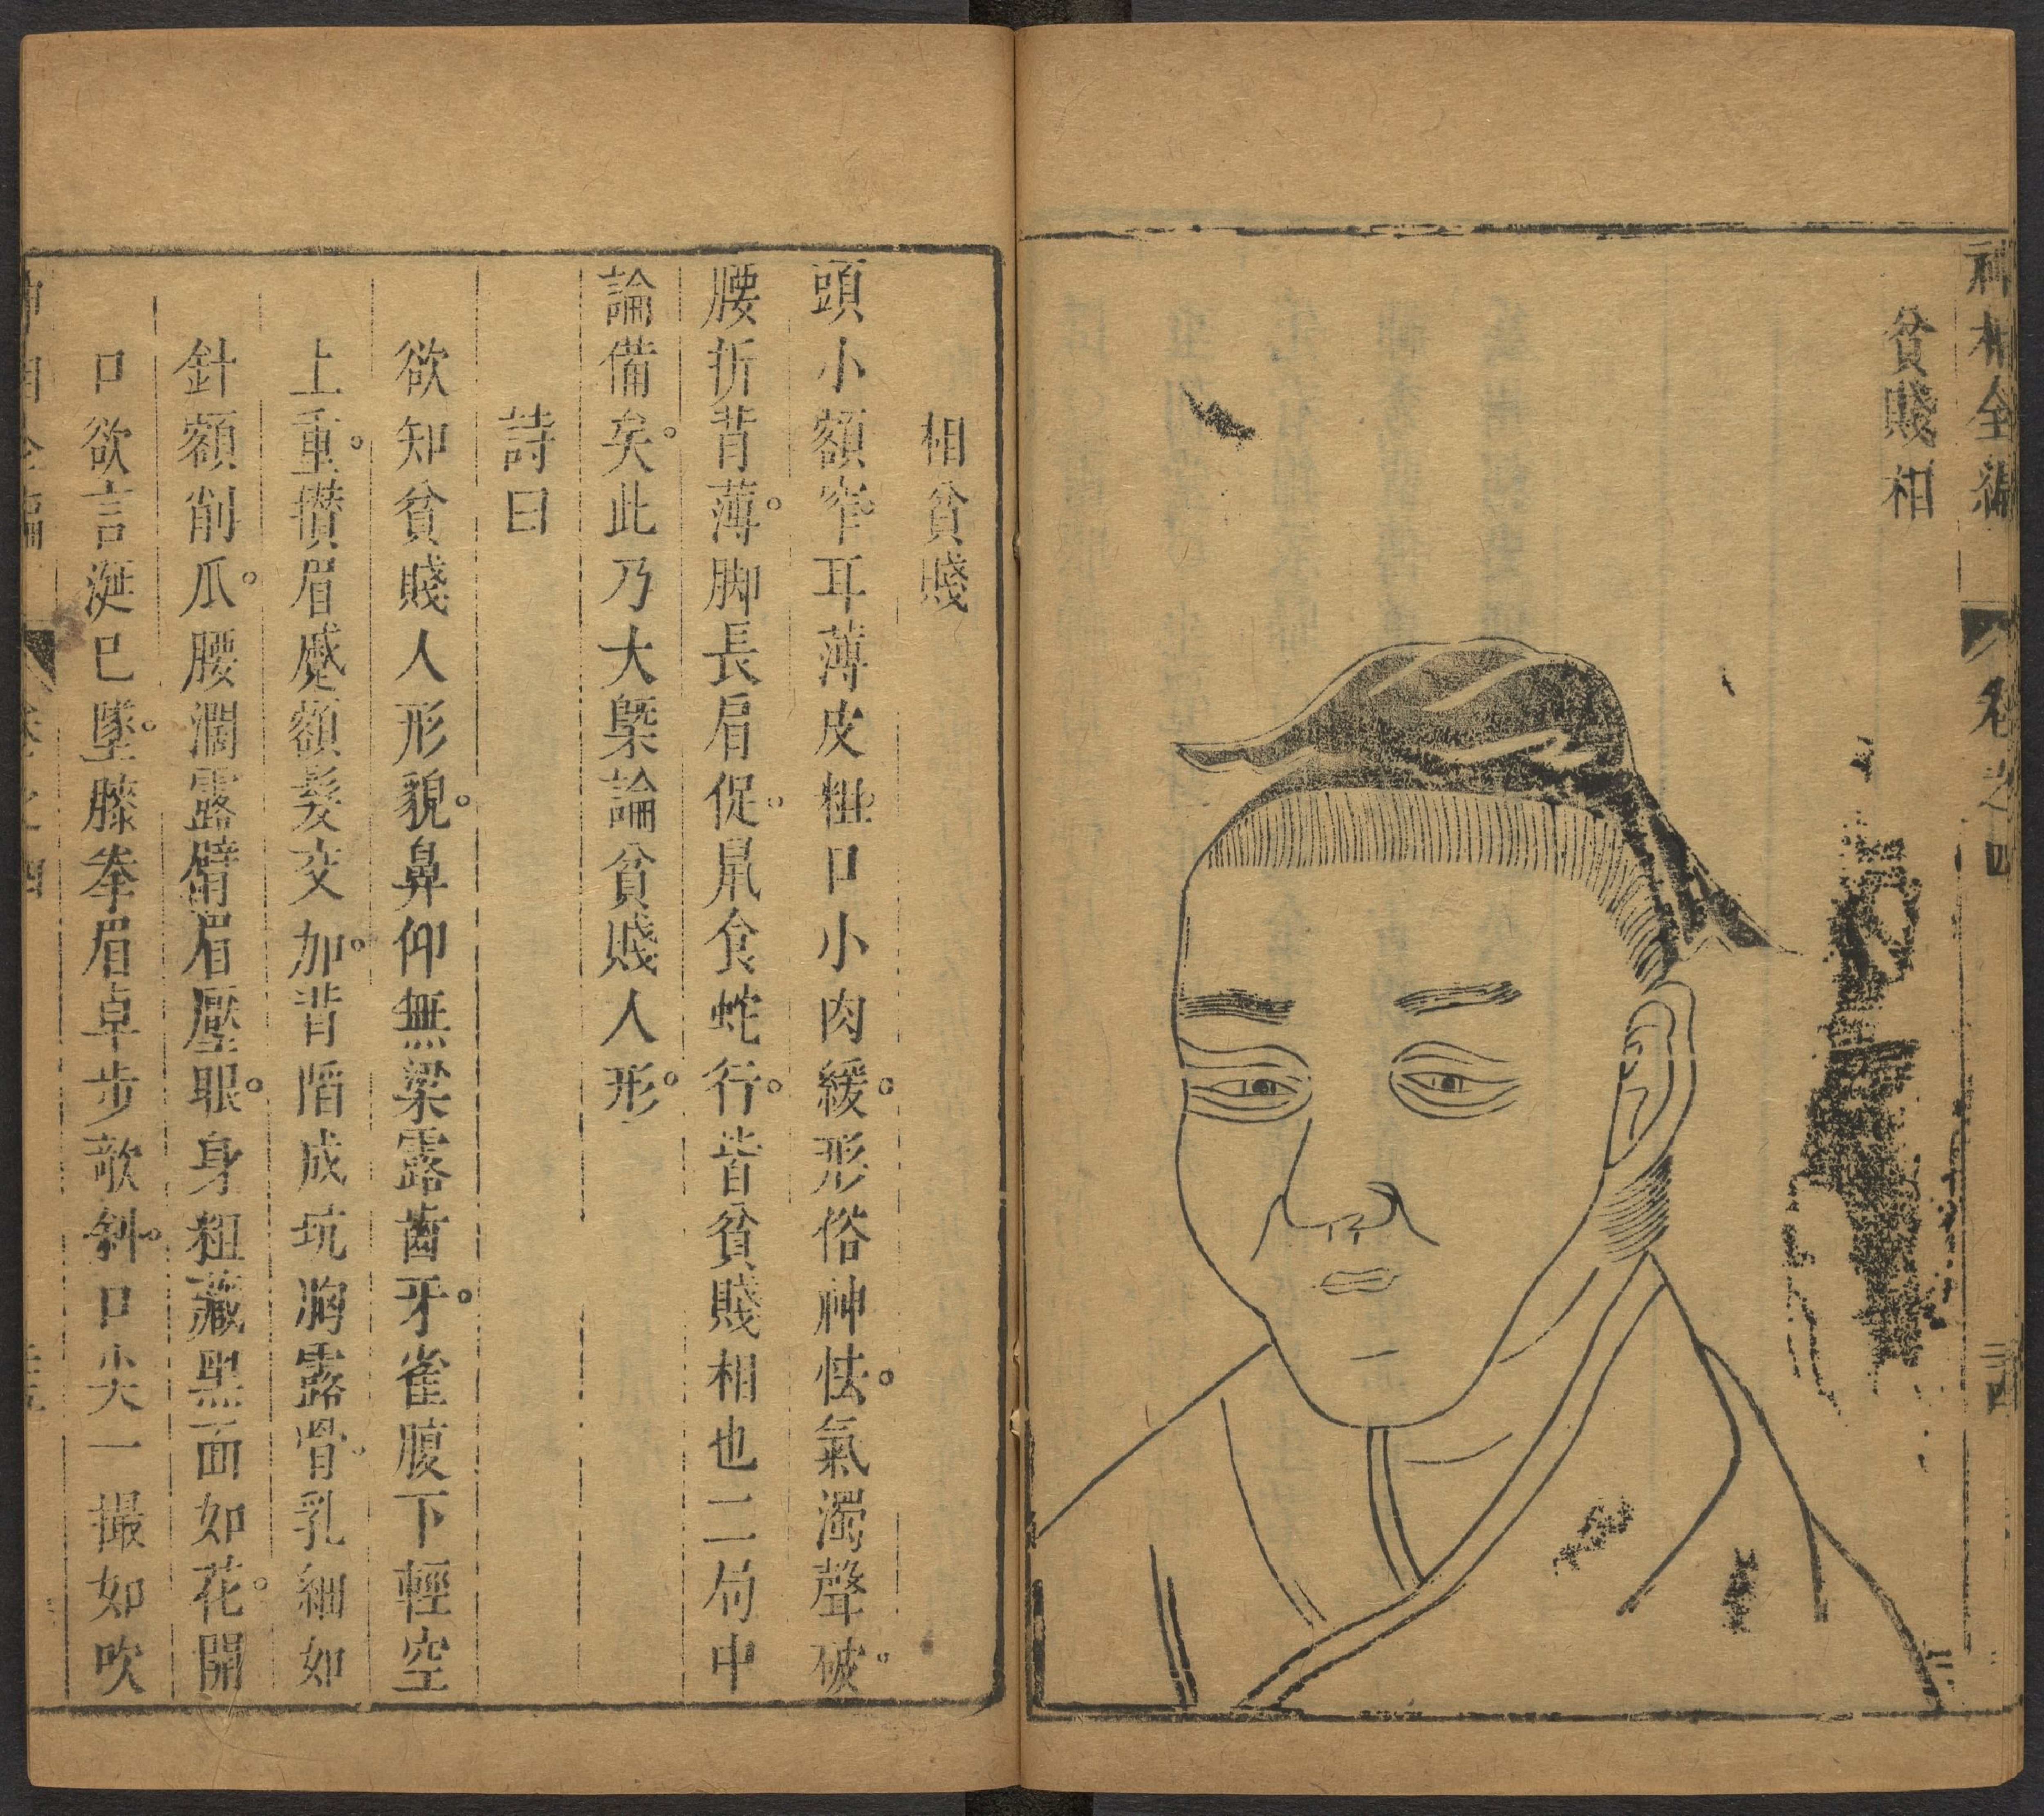 神相全編
卷之四
三十四
貧賤相
相貧賤
頭小額窄。耳薄皮粗。口小肉緩。形俗神怯。氣濁聲破。
腰折背薄。脚長肩促。鼠食蛇行。皆貧賤相也二局中
論備矣。此乃大槩論貧賤人形。
詩曰
欲知貧賤人形貌。鼻仰無梁露齒牙。雀腹下輕空
上重。攅眉蹙額髮交加。背陷成坑胸露骨。乳細如
針額削瓜。腰濶露臀眉壓眼。身粗藏黑面如花。開
口欲言涎已墜。膝拳眉卓步欹斜。口尖一撮如吹
神相全編
卷之四